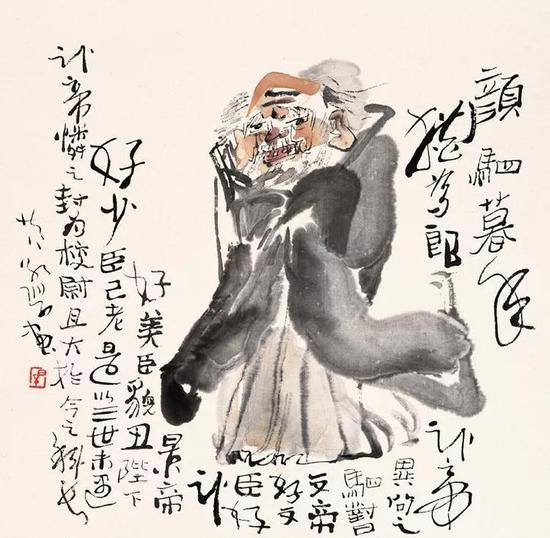 顔駟暮年
猶為郎
武帝
異问之
駟對
文帝
好文
臣好
武
景帝
好美臣貌丑陛下
好少臣已老是以三世未遇
武帝憐之封为校尉且大於今之縣長